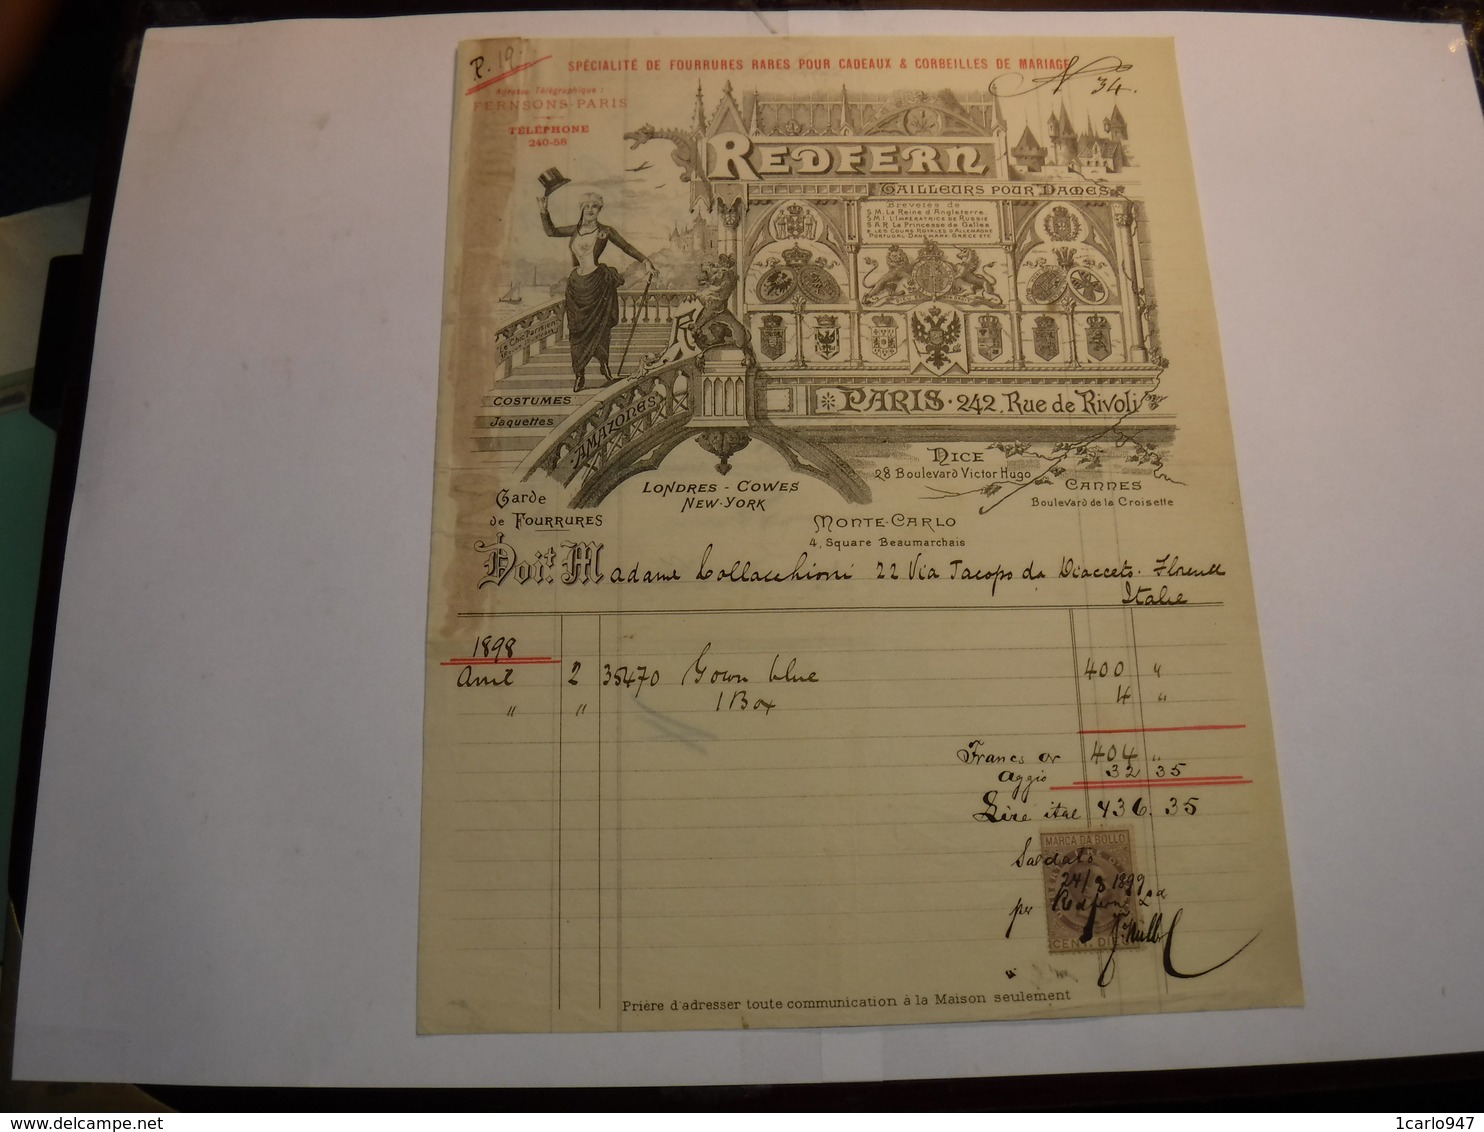 P. 19.
SPÉCIALITÉ DE FOURRURES RARES POUR CADEAUX & CORBEILLES DE MARIAGE
N 34.
Adresse Télégraphique :
FERNSONS-PARIS
TÉLÉPHONE
240-58
REDFERN
TAILLEURS POUR DAMES
Brevetés de
S.M. La Reine d'Angleterre
S.M.I. L'IMPÉRATRICE DE RUSSIE
S.A.R. La Princesse de Galles
& LES COURS ROYALES D'ALLEMAGNE
PORTUGAL DANEMARK GRÈCE ETC
Le Chic Parisien
R
COSTUMES
Jaquettes
AMAZONES
PARIS · 242, Rue de Rivoli
NICE
28 Boulevard Victor Hugo
CANNES
Boulevard de la Croisette
LONDRES - COWES
NEW-YORK
Garde
de FOURRURES
MONTE-CARLO
4, Square Beaumarchais
Doit Madame Collacchioni 22 Via Jacopo da Diacceto. Florence
Italie
1898
Avril 2 35470 Gown blue 400 "
" " 1 Box 4 "
Francs or 404 "
Aggio 32 35
Lire ital 436. 35
MARCA DA BOLLO
Saldato
24/8 1899
per Redfern Ld
CENT. DIECI
Prière d'adresser toute communication à la Maison seulement
delcampe.net
1carlo947